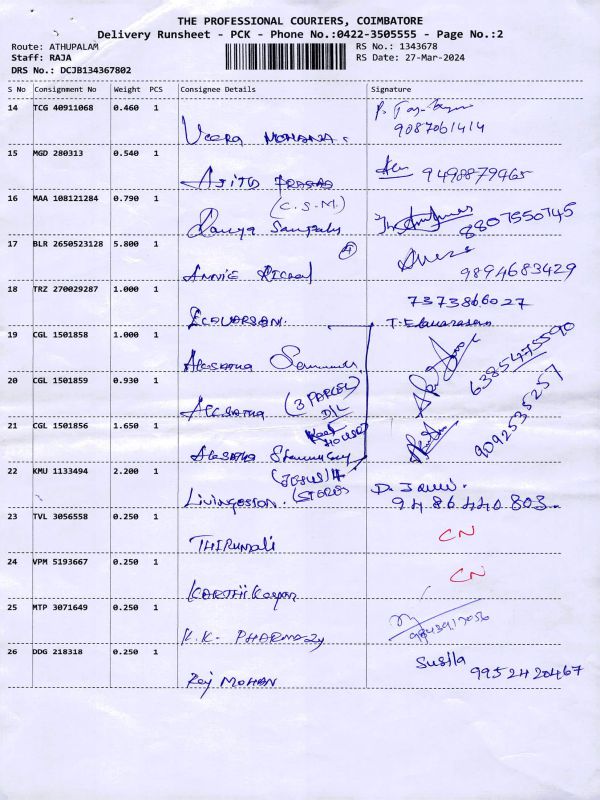 THE PROFESSIONAL COURIERS, COIMBATORE
Delivery Runsheet - PCK - Phone No.:0422-3505555 - Page No.:2
Route: ATHUPALAM
RS No.: 1343678
Staff: RAJA
RS Date: 27-Mar-2024
DRS No.: DCJB134367802
S No Consignment No Weight PCS Consignee Details Signature
14 TCG 40911068 0.460 1
9087061414
VEERA MOHANA.
15 MGD 280313 0.540 1
9498879465
AJITD PRASAD
16 MAA 108121284 0.790 1
(C.S.M.)
8807550745
17 BLR 2650523128 5.800 1
4
9894683429
ANNIE
18 TRZ 270029287 1.000 1
7373866027
ECOVARSAN.
T. Elavarasan
19 CGL 1501858 1.000 1
6385475590
20 CGL 1501859 0.930 1
(3 PARCEL
D/L
21 CGL 1501856 1.650 1
HOUSE)
9092535257
22 KMU 1133494 2.200 1
(JESUS
STORES)
LIVINGESSON.
9486440803
23 TVL 3056558 0.250 1
CN
THIRUMALI
24 VPM 5193667 0.250 1
CN
KARTHIKeyan
25 MTP 3071649 0.250 1
K.K. PHARMACY
26 DDG 218318 0.250 1
Susila
9952420467
Raj MOHAN